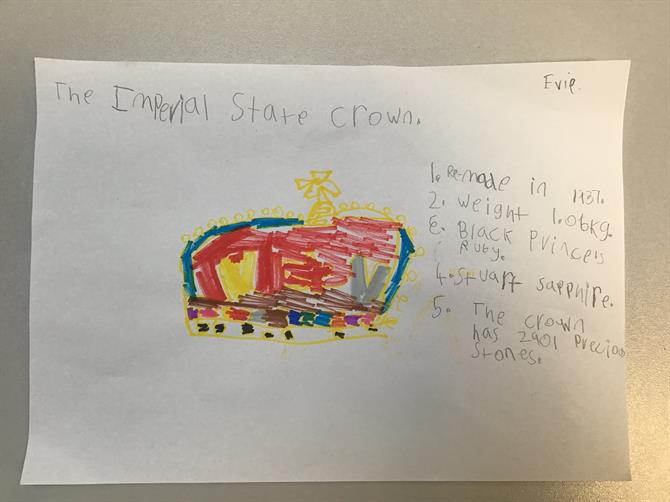 Evie.
The Imperial State crown.
1. Re-made in 1937.
2. weight 1.06kg.
3. Black Prince's
Ruby.
4. Stuart sapphire.
5. The crown
has 2901 Preciou
Stones.